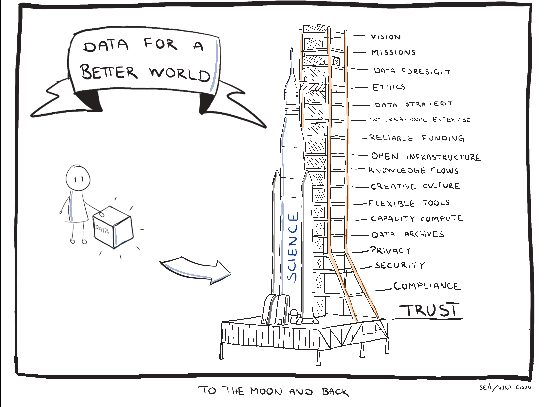 DATA FOR A
BETTER WORLD
VISION
MISSIONS
DATA FORESIGHT
ETHICS
DATA STRATEGY
RELIABLE FUNDING
OPEN INFRASTRUCTURE
KNOWLEDGE FLOWS
CREATIVE CULTURE
FLEXIBLE TOOLS
CAPALITY COMPUTE
DATA ARCHIVES
PRIVACY
SECURITY
COMPLIANCE
TRUST
SCIENCE
TO THE MOON AND BACK